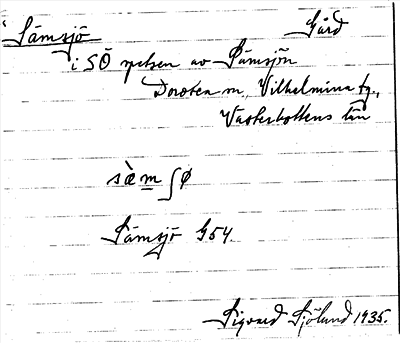 Sämsjö Gård
i SÖ spetsen av Sämsjön
Dorotea sn, Vilhelmina tg.,
Västerbottens län
sä̀m̲ʃø
Sämsjö G54.
Sigvard Sjölund 1935.